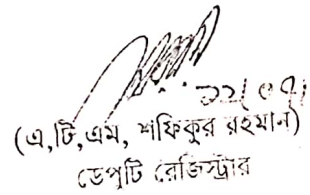 ২২/০৭/
(এ,টি,এম, শফিকুর রহমান)
ডেপুটি রেজিস্ট্রার